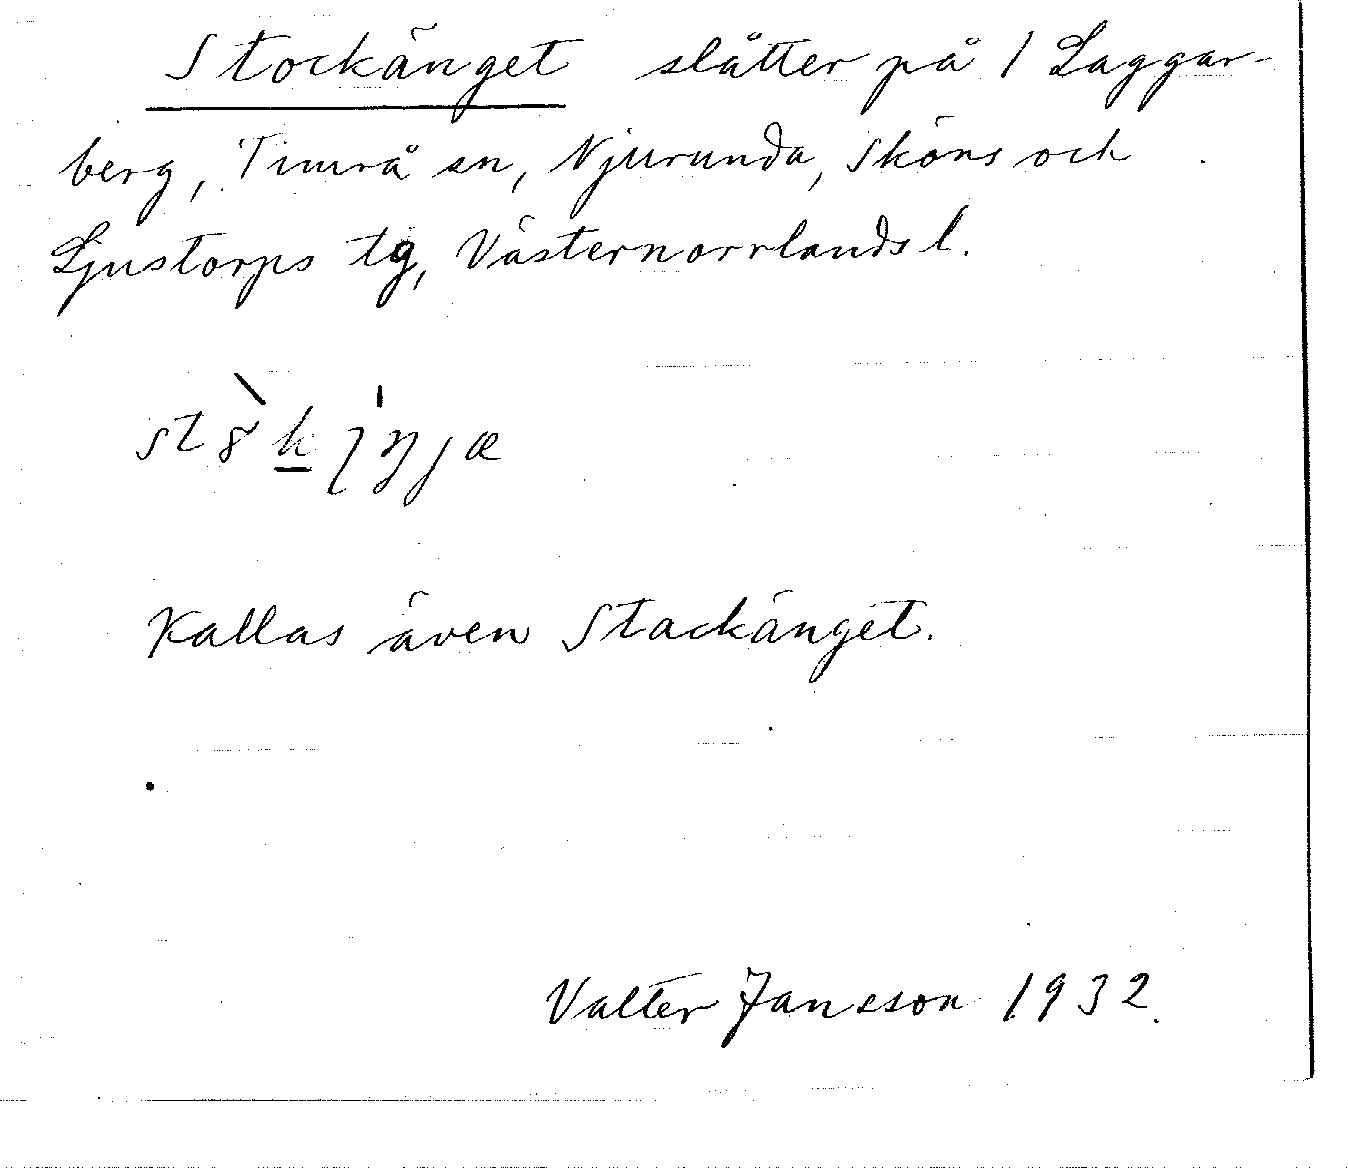 Stockänget slåtter på 1 Laggar-
berg, Timrå sn, Njurunda, Sköns och
Ljustorps tg, Västernorrlands l.
Kallas även Stackänget.
Valter Jansson 1932.